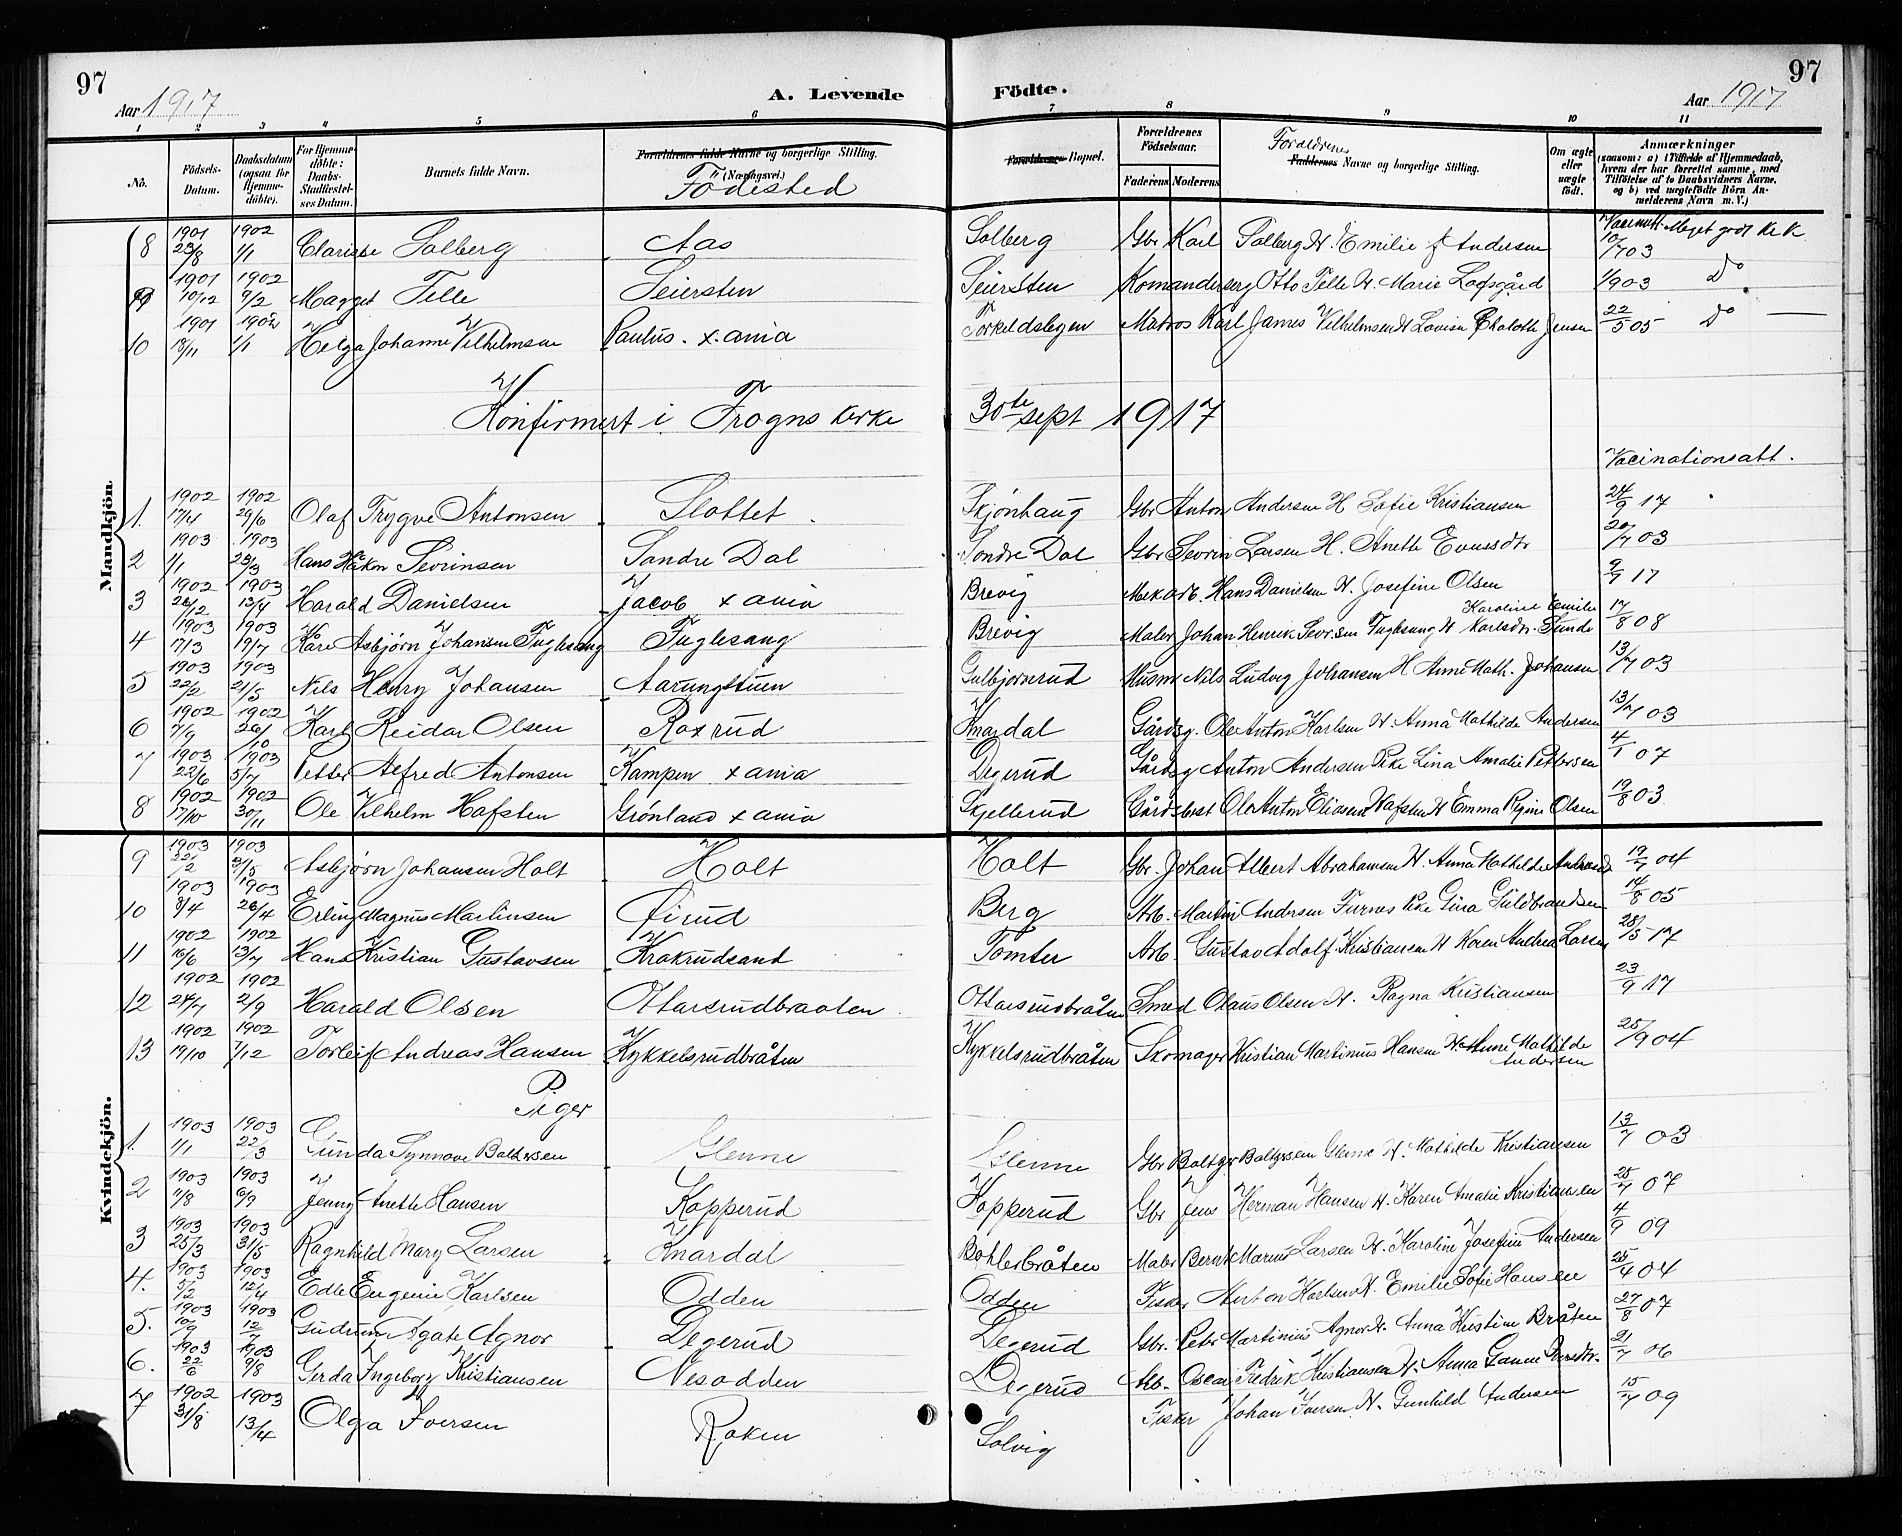 97
Aar 1917
A. Levende
Födte.
Aar 1917
97
1 2 3 4 5 6 7 8 9 10 11
No.
Födsels-Datum.
Daabsdatum (ogsaa for Hjemme-döbte).
For Hjemme-döbte: Daabs-Stadfæstel-ses Datum.
Barnets fulde Navn.
Forældrenes fulde Navne og borgerlige Stilling. (Næringsvei.)
Födested
Forældrenes Bopæl.
Forældrenes Födselsaar.
Faderens Moderens
Foraldrenes
Faddernes Navne og borgerlige Stilling.
Om ægte eller uægte födt.
Anmærkninger
(saasom: a) i Tilfælde af Hjemmedaab, hvem der har forrettet samme, med Tilföielse af to Daabsvidners Navne, og b) ved uægtefödte Börn Anmelderens Navn m. V.)
Mandkjön.
8 1901 23/8 1902 1/1 Solberg Aas Solberg Gbr Karl Solberg H. Emilie Andersen 10/7 03 Meget godt
1901 10/12 1902 9/2 Telle Seiersten Seiersten Otto Telle H. Marie 1/9 03 Do
10 1901 18/11 1902 1/1 Helga Johanne Vilhelmsen Paulus. x.ania Matros Karl James Vilhelmsen H Lovisa Jensen 22/5 05 Do
Konfirmert i Frogns kerke 30te sept 1917
Vacinationsatt.
1. 1902 17/4 1902 29/6 Olaf Trygve Antonsen Slottet Skjønhaug Gbr Anton Andersen H Sofie Kristiansen 24/9 17
2 1903 1/1 1903 Hans Håkon Sevrinsen Søndre Dal Søndre Dal Gbr Sevrin Larsen H. Anette 20/7 03
3 1902 26/12 1903 13/4 Harald Danielsen Jacob x ania Brevig Hans Danielsen H. Josefine Olsen 9/7 17
4 1903 17/3 1903 19/7 Kåre Asbjørn Johansen Fuglesang Fuglesang Brevig Maler Johan Henrik Fuglesang H Karoline Emilie Karlsdr. Sunde 17/8 08
5 1903 22/2 1903 21/5 Nils Henry Johansen Aarungstuen Gulbjørnsrud Husm Nils Ludvig Johansen H Anne Math. Johansen 13/7 03
6 1902 7/9 1902 26/10 Karl Reidar Olsen Roxrud Knardal Gårdsg. Ole Anton Karlsen H. Anna Mathilde Andersen 13/7 03
7 1903 22/6 1903 5/7 Petter Alfred Antonsen Kampen x ania Degerud Gårdsg Anton Andersen Pike Lina Amalie Pettersen 4/1 07
8 1902 17/10 1902 30/11 Ole Vilhelm Hafsten Grønland x ania Skjellerud Ole Anton Eliasen Hafsten H Emma Regine Olsen 19/8 03
9 1903 22/2 1903 Asbjørn Johansen Holt Holt Holt Gbr. Johan Albert Abrahamsen H. Anna Mathilde 19/7 04
10 1903 8/4 1903 26/4 Erling Magnus Martinsen Berg Arb. Martin Andersen Furnes Pike Gina Guldbrandsen 14/8 05
11 1902 16/6 1902 13/7 Hans Kristian Gustavsen Krokrudsand Tomter Arb. Gustav Adolf Kristiansen H Karen Andrea Larsen 28/5 17
12 1902 1902 2/9 Harald Olsen Ottarsrudbraaten Ottarsrudbråten Smed Olaus Olsen H. Ragna Kristiansen 23/9 17
13 1902 19/10 1902 7/12 Torleif Andreas Hansen Kykkelsrudbråten Kykkelsrudbråten Skomager Kristian Martinus Hansen H. Anne Mathilde Andersen 25/9 04
Piger
Kvindekjön.
1. 1903 1/1 1903 22/3 Gunda Synnøve Baltzersen Glenne Glenne Gbr Baltzer Baltzersen Glenne H. Mathilde Kristiansen 13/7 03
2 1903 11/8 1903 6/9 Jenny Anette Hansen Kopperud Kopperud Gbr Jens Herman Hansen H. Karen Amalie Kristiansen 25/7 07
3 1903 25/3 1903 31/5 Ragnhild Mary Larsen Knardal Bøhlerbråten Maler Bernt Marius Larsen H. Karoline Josefine Andersen 4/9 09
4. 1903 5/2 1903 12/4 Edle Eugenie Karlsen Odden Odden Fisker Anton Karlsen H. Emilie Sofie Hansen 25/4 04
5. 1903 10/9 1903 12/7 Gudrun Agate Agnor Degerud Degerud Gbr. Peter Martinius Agnor H. Anna Kristine Bråten 27/8 07
6. 1903 22/6 1903 9/8 Gerda Ingeborg Kristiansen Nesodden Degerud Arb. Oscar Fredrik Kristiansen H. Anna 21/7 06
7 1902 31/8 1903 13/4 Olga Iversen Røken Solvig Fisker Johan Iversen H. Gunhild Andersen 15/7 09